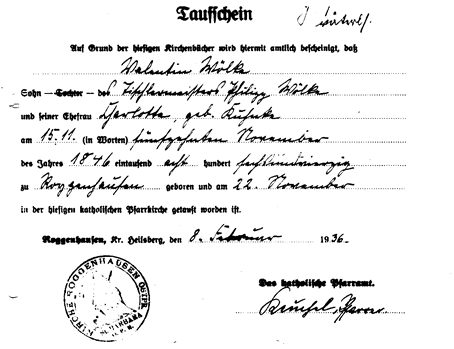 Taufschein
I väterl.
Auf Grund der hiesigen Kirchenbücher wird hiermit amtlich bescheinigt, daß
Valentin Wölke
Sohn – Tochter – des Tischlermeisters Philipp Wölke
und seiner Ehefrau Charlotte, geb. Kuhnke
am 15.11. (in Worten) fünfzehnten November
des Jahres 1846 eintausend acht hundert sechsundvierzig
zu Roggenhausen geboren und am 22. November
in der hiesigen katholischen Pfarrkirche getauft worden ist.
Roggenhausen, Kr. Heilsberg, den 8. Februar 1936.
Das katholische Pfarramt.
Pfarrer.
KIRCHE ROGGENHAUSEN OSTPR.
S. BARBARA